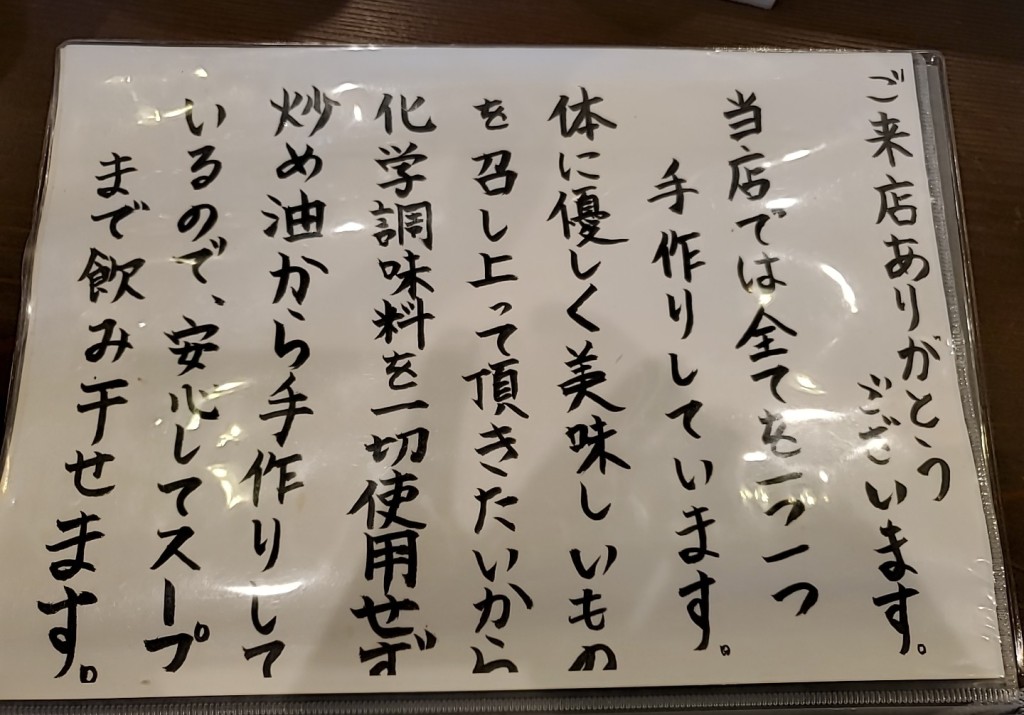 ご来店ありがとう
ございます。
当店では全てを一つ一つ
手作りしています。
体に優しく美味しいもの
を召し上って頂きたいから
化学調味料を一切使用せず
炒め油から手作りして
いるので、安心してスープ
まで飲み干せます。